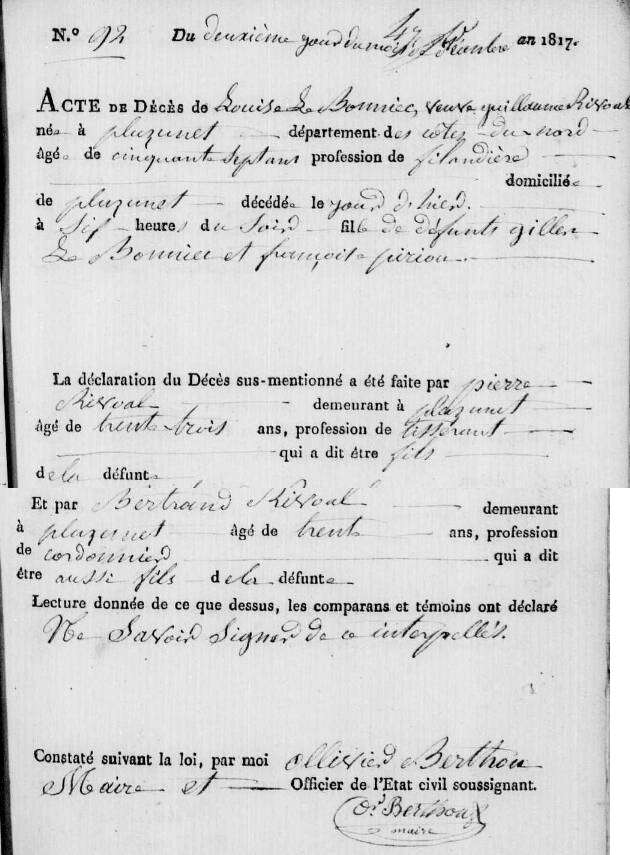 N.º 92 Du deuxième jour du mois de décembre an 1817.
ACTE DE DÉCÈS de Louise Le Bonniec, veuve guillaume Rivoal
née à pluzunet département des côtes-du-nord
âgée de cinquante Sept ans profession de filandière
domiciliée
de pluzunet décédée le jour d'hier
à Six heures du Soir fille de défunts gilles
Le Bonniec et françoise piriou
La déclaration du Décès sus-mentionné a été faite par pierre
Rivoal demeurant à pluzunet
âgé de trente-trois ans, profession de tisserant
qui a dit être fils
de la défunte
Et par Bertrand Rivoal demeurant
à pluzunet âgé de trente ans, profession
de cordonnier qui a dit
être aussi fils de la défunte
Lecture donnée de ce que dessus, les comparans et témoins ont déclaré
Ne Savoir Signer de ce interpellés.
Constaté suivant la loi, par moi ollivier Berthou
Maire et Officier de l'Etat civil soussignant.
or Berthou
maire